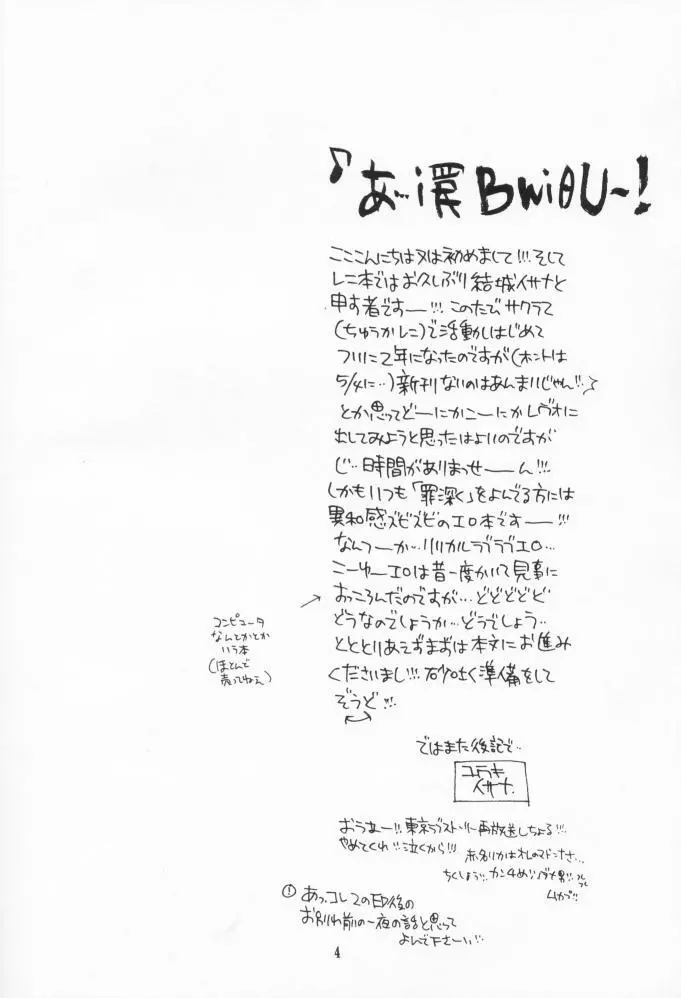 こここんにちは又は初めまして!!!そして
レニ本ではお久しぶり結城イサナと
申す者ですー!!! このたびサクラで
(ちゅうかレニ)で活動しはじめて
ついに2年になったのですが(ホントは
5/4に‥)新刊ないのはあんまいじゃん!!
とか思ってどーにかこーにかレヴォに
出してみようと思ったはよいのですが
じ‥時間がありまっせーーん!!!
しかもいつも「罪深く」をよんでる方には
異和感ズビズビのエロ本ですー!!!
なんつーか‥リリカルラブラブエロ…
こーゆーエロは昔一度かいて見事に
おっころんだのですが…どどどどど
どうなのでしょうか…どうでしょう‥
とととりあえずまずは本文にお進み
くださいまし!!!砂吐く準備をして
ぞうど!!!
コンピュータ
なんとかとか
いう本
(ほとんど
売ってねえ)
ではまた後記で‥
ユウキ
イサナ
おうなー!!東京ラブストーリー再放送しちょる!!!
やめてくれ!!泣くから!!!
赤名リカはオレのマドンナさ…
ちくしょう!!カンチめ!!ダメ男!!
ムカプ!!
! あっコレ2の印後の
お別れ前の一夜の話と思って
よんで下さーい!!
4